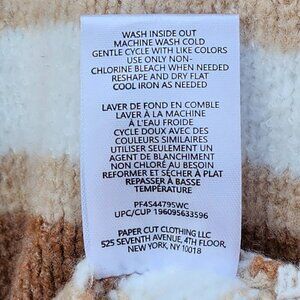 WASH INSIDE OUT
MACHINE WASH COLD
GENTLE CYCLE WITH LIKE COLORS
USE ONLY NON-
CHLORINE BLEACH WHEN NEEDED
RESHAPE AND DRY FLAT
COOL IRON AS NEEDED
LAVER DE FOND EN COMBLE
LAVER À LA MACHINE
À L'EAU FROIDE
CYCLE DOUX AVEC DES
COULEURS SIMILAIRES
UTILISER SEULEMENT UN
AGENT DE BLANCHIMENT
NON CHLORÉ AU BESOIN
REFORMER ET SÉCHER À PLAT
REPASSER À BASSE
TEMPÉRATURE
PF4S44795WC
UPC/CUP 196095633596
PAPER CUT CLOTHING LLC
525 SEVENTH AVENUE, 4TH FLOOR,
NEW YORK, NY 10018